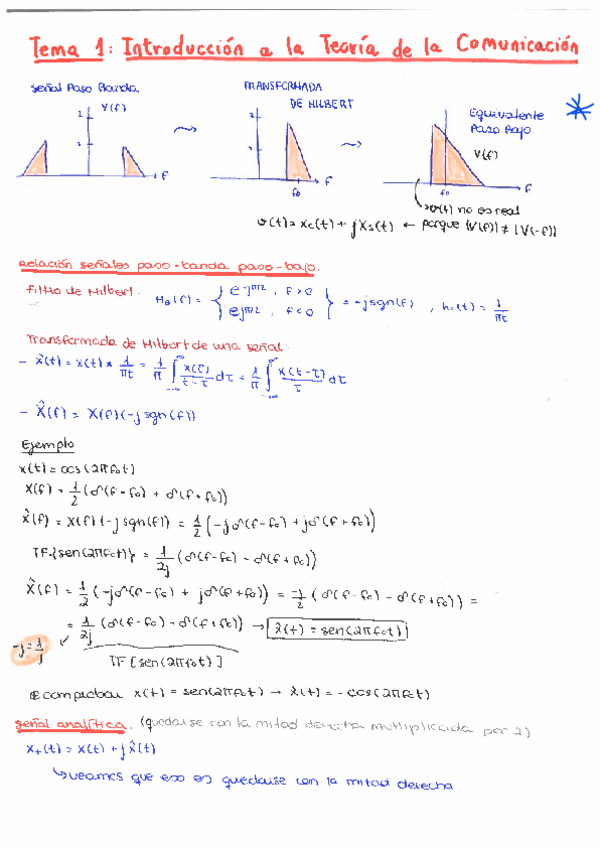 Tema 1: Introducción a la Teoría de la Comunicación
Señal Paso Banda.
TRANSFORMADA DE HILBERT
Equivalente Paso Bajo
V(f)
f
f₀
f
V(f)
f₀
f
v(t) no es real
v(t) = xc(t) + j xs(t) ← porque |V(f)| ≠ |V(-f)|
Relación señales paso-banda paso-bajo.
Filtro de Hilbert: H_Q(f) = { e^-jπ/2, f>0 ; e^jπ/2, f<0 } = -jsgn(f), h(t) = 1/πt
Transformada de Hilbert de una señal:
- x̂(t) = x(t) * 1/πt = 1/π ∫_-∞^∞ x(τ)/(t-τ) dτ = 1/π ∫_-∞^∞ x(t-τ)/τ dτ
- X̂(f) = X(f)(-j sgn(f))
Ejemplo
x(t) = cos(2πf₀t)
X(f) = 1/2 (δ(f-f₀) + δ(f+f₀))
X̂(f) = X(f)(-j sgn(f)) = 1/2 (-jδ(f-f₀) + jδ(f+f₀))
TF{sen(2πf₀t)} = 1/2j (δ(f-f₀) - δ(f+f₀))
X̂(f) = 1/2 (-jδ(f-f₀) + jδ(f+f₀)) = -j/2 (δ(f-f₀) - δ(f+f₀)) =
= 1/2j (δ(f-f₀) - δ(f+f₀)) → x̂(t) = sen(2πf₀t)
-j = 1/j
TF[sen(2πf₀t)]
comprobar x(t) = sen(2πf₀t) → x̂(t) = -cos(2πf₀t)
Señal analítica. (quedarse con la mitad derecha multiplicada por 2)
x₊(t) = x(t) + jx̂(t)
↳ veamos que eso es quedarse con la mitad derecha